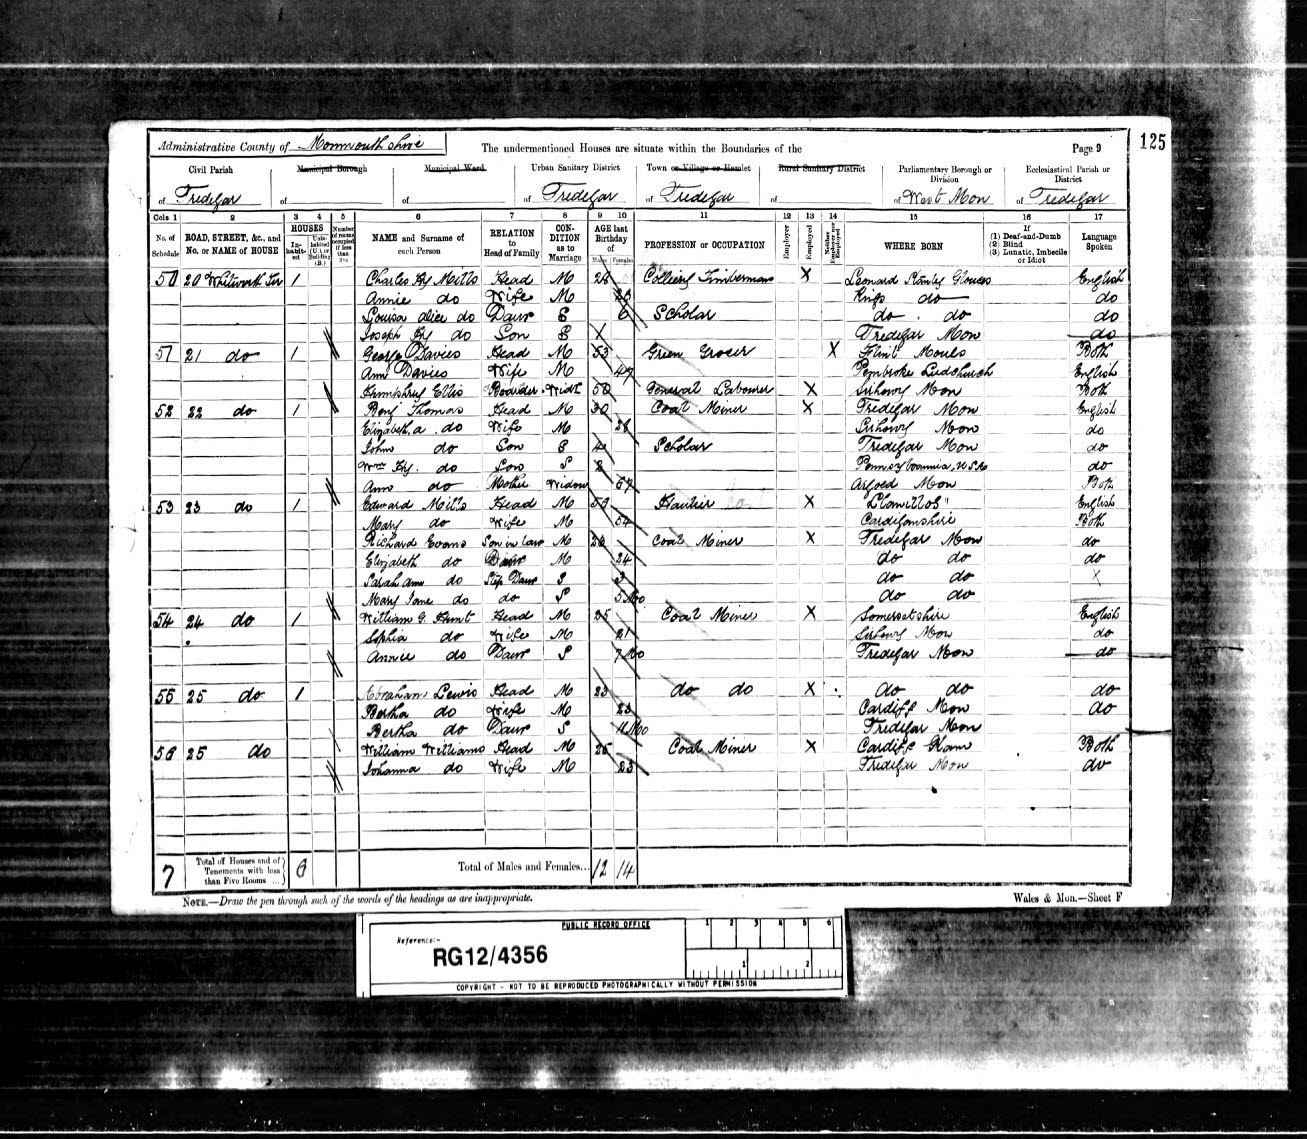 125
Administrative County of Monmouthshire The undermentioned Houses are situate within the Boundaries of the Page 9
Civil Parish Municipal Borough Municipal Ward Urban Sanitary District Town or Village or Hamlet Rural Sanitary District Parliamentary Borough or Division Ecclesiastical Parish or District
of Tredegar of of of Tredegar of Tredegar of of West Mon of Tredegar
Cols. 1 2 3 4 5 6 7 8 9 10 11 12 13 14 15 16 17
No. of Schedule ROAD, STREET, &c., and No. or NAME of HOUSE HOUSES In-habit-ed Unin-habited (U.) or Building (B.) Number of rooms occupied if less than five NAME and Surname of each Person RELATION to Head of Family CON-DITION as to Marriage AGE last Birthday of Males Females PROFESSION or OCCUPATION Employer Employed Neither Employer nor Employed WHERE BORN If (1) Deaf-and-Dumb (2) Blind (3) Lunatic, Imbecile or Idiot Language Spoken
50 20 Whitworth Ter 1 Charles Hy Mills Head M 28 Colliery Timberman X Leonard Stanley Glouces English
Annie do Wife M Kings do do
Louisa Alice do Daur S 6 Scholar do do do
Joseph Hy do Son S Tredegar Mon do
51 21 do 1 George Davies Head M 53 Green Grocer X Flint Both
Ann Davies Wife M 47 Pembroke Ludchurch English
Humphrey Ellis Boarder Widr 50 General Labourer X Sirhowy Mon Both
52 22 do 1 Benj Thomas Head M 30 Coal Miner X Tredegar Mon English
Elizabeth A. do Wife M 28 Sirhowy Mon do
John do Son S 4 Scholar Tredegar Mon do
Wm Hy. do Son S 2 Pennsylvannia, U.S.A do
Ann do Mother Widow 67 Argoed Mon Both
53 23 do 1 Edward Mills Head M 59 Haulier X "Llanilltos" English
Mary do Wife M 54 Cardiganshire Both
Richard Evans Son in law M 23 Coal Miner X Tredegar Mon do
Elizabeth do Daur M 24 do do do
Sarah Ann do Step Daur S 3 do do X
Mary Jane do do S 5 Mo do do
54 24 do 1 William G. Hunt Head M 25 Coal Miner X Somersetshire English
Sophia do Wife M 21 Sirhowy Mon do
Annie do Daur S 7 Mo Tredegar Mon do
55 25 do 1 Abraham Lewis Head M 23 do do X do do do
Bertha do Wife M 23 Cardiff Mon do
Bertha do Daur S 11 Mo Tredegar Mon
56 25 do William Williams Head M 26 Coal Miner X Cardiff Glam Both
Johanna do Wife M 23 Tredegar Mon do
7 Total of Houses and of Tenements with less than Five Rooms ... 6 Total of Males and Females... 12 14
NOTE.—Draw the pen through such of the words of the headings as are inappropriate. Wales & Mon.—Sheet F
PUBLIC RECORD OFFICE
1 2 3 4 5 6
Reference:-
RG12/4356
1 2
COPYRIGHT - NOT TO BE REPRODUCED PHOTOGRAPHICALLY WITHOUT PERMISSION